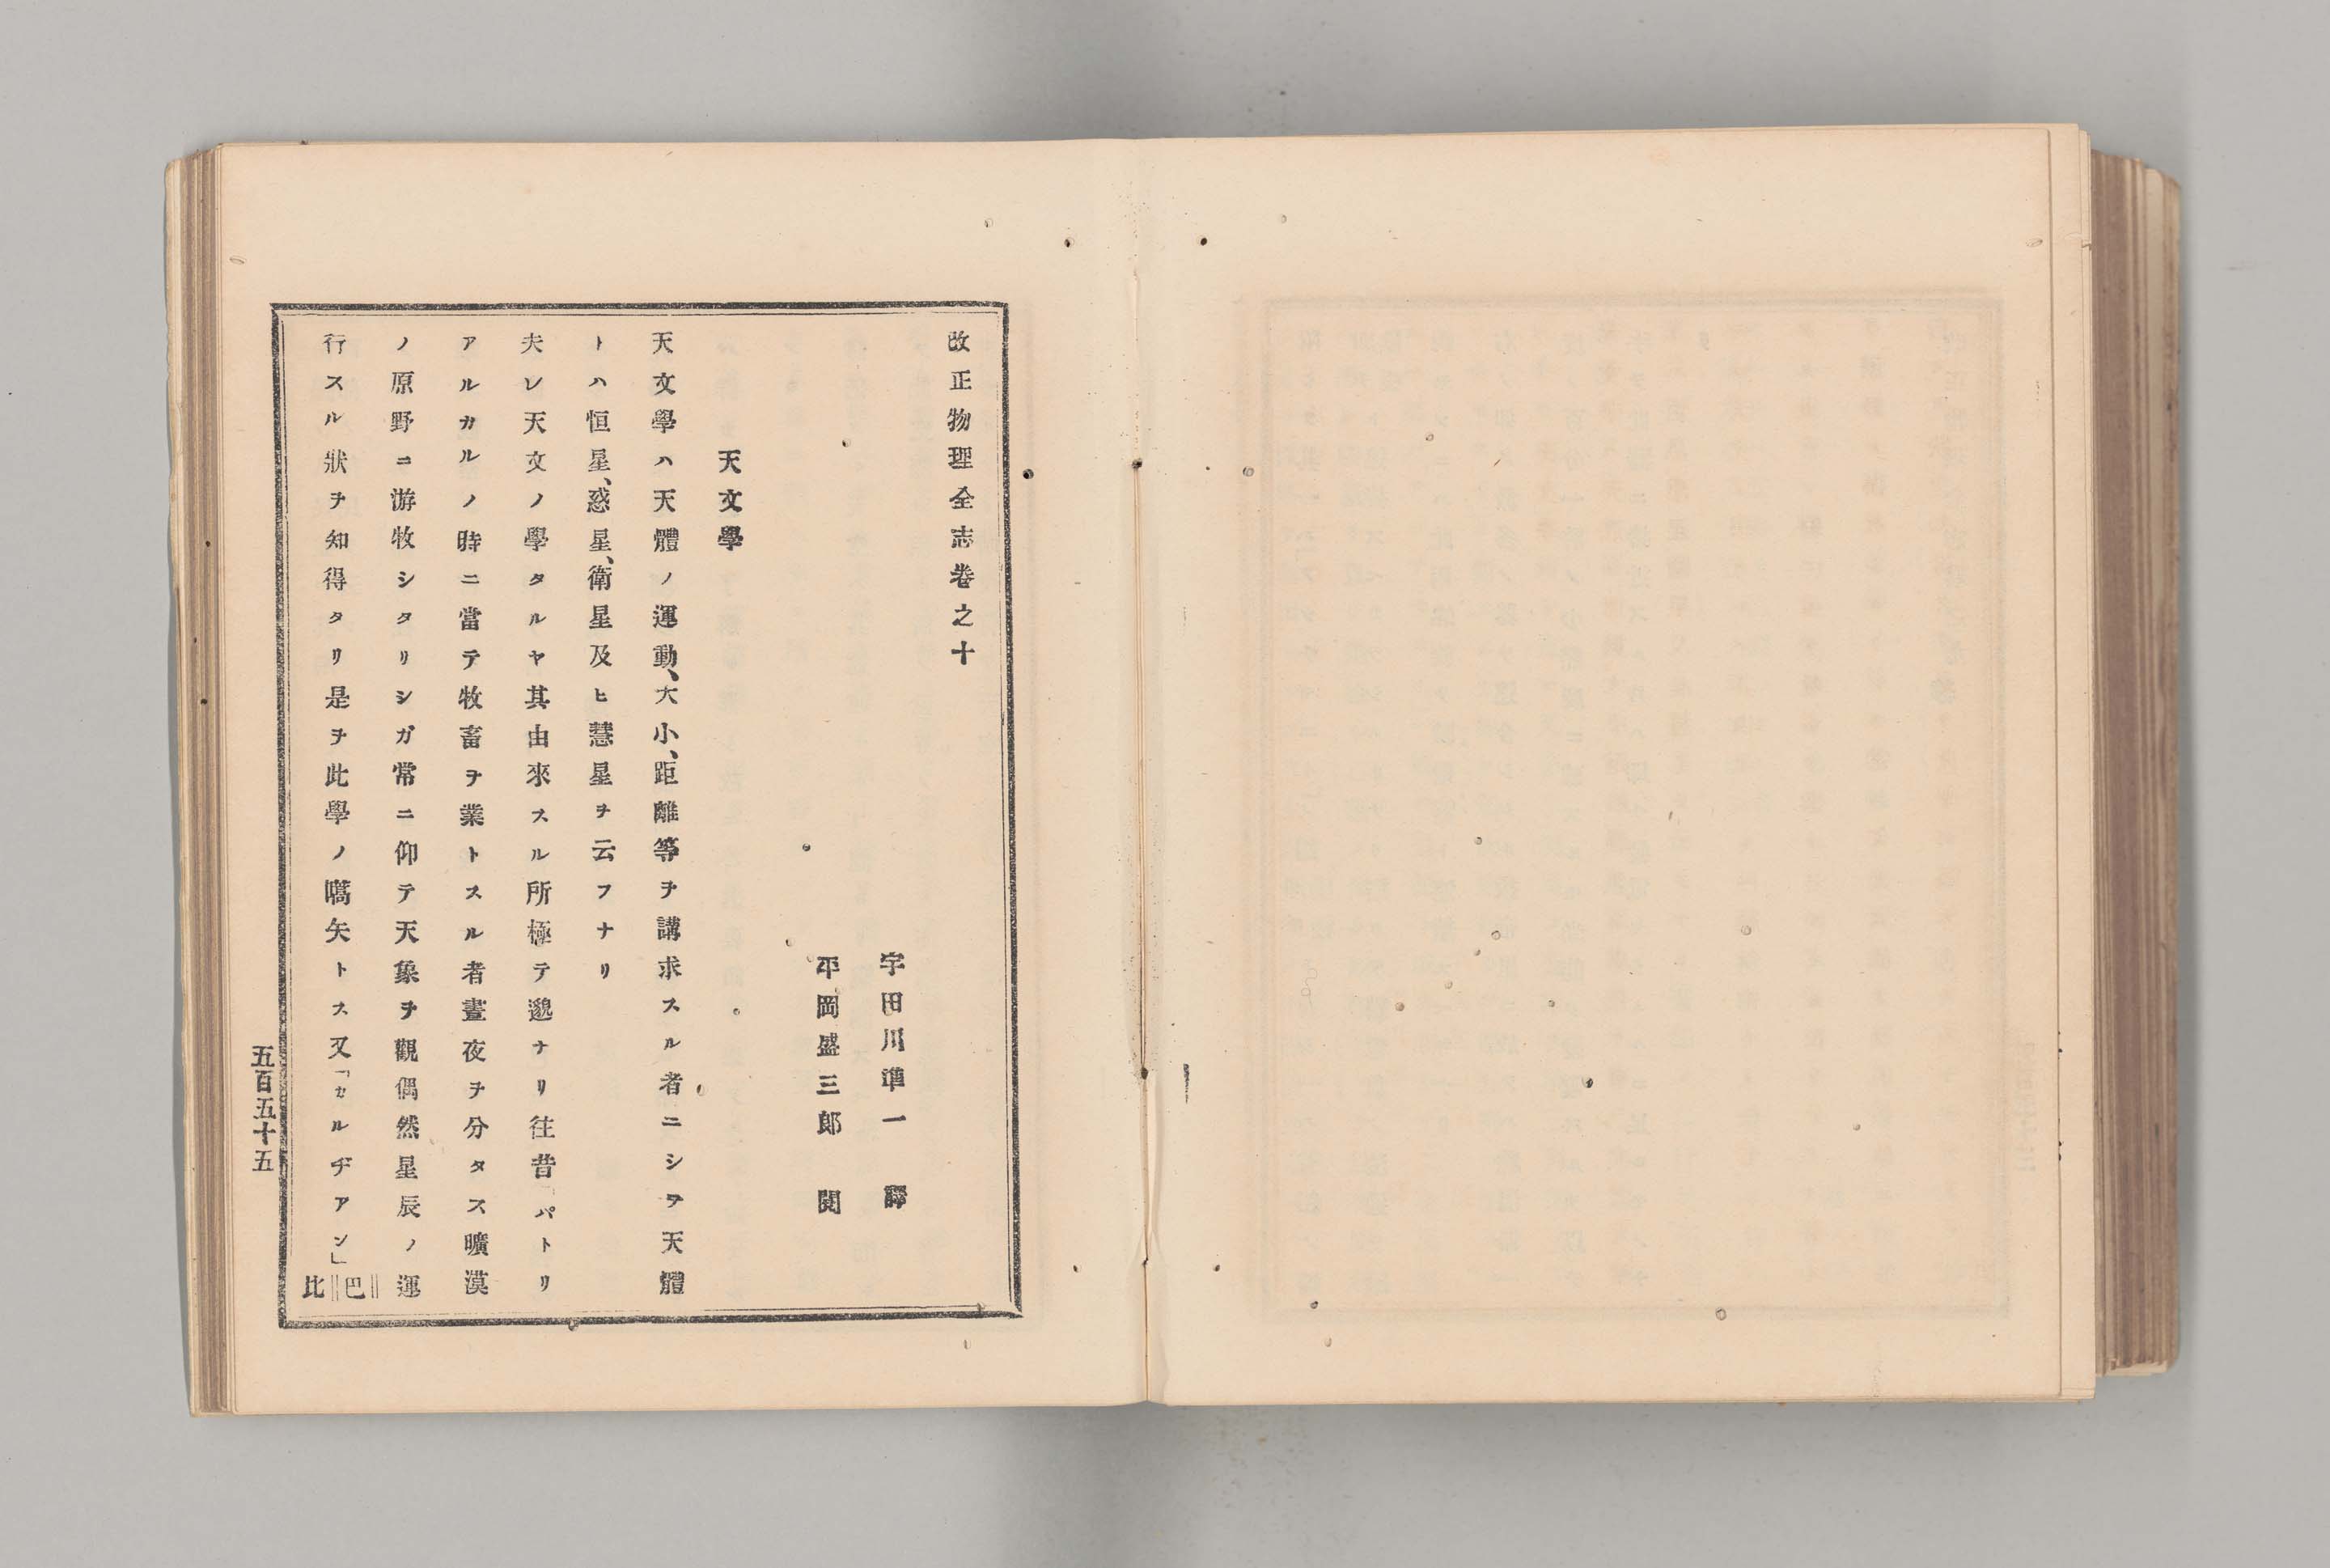 改正物理全志卷之十
宇田川準一 譯
平岡盛三郎 閱
天文學
天文學ハ天體ノ運動、大小、距離等ヲ講求スル者ニシヲ天體
トハ恒星、惑星、衛星及ヒ慧星ヲ云フナリ
夫レ天文ノ學タルヤ其由來スル所極テ邈ナリ往昔「パトリ
アルカルノ時ニ當テ牧畜ヲ業トスル者晝夜ヲ分タス曠漠
ノ原野ニ游牧シタリシガ常ニ仰テ天象ヲ觀偶然星辰ノ運
行スル狀ヲ知得タリ是ヲ此學ノ嚆矢トス又「カルヂアン」巴
比
五百五十五